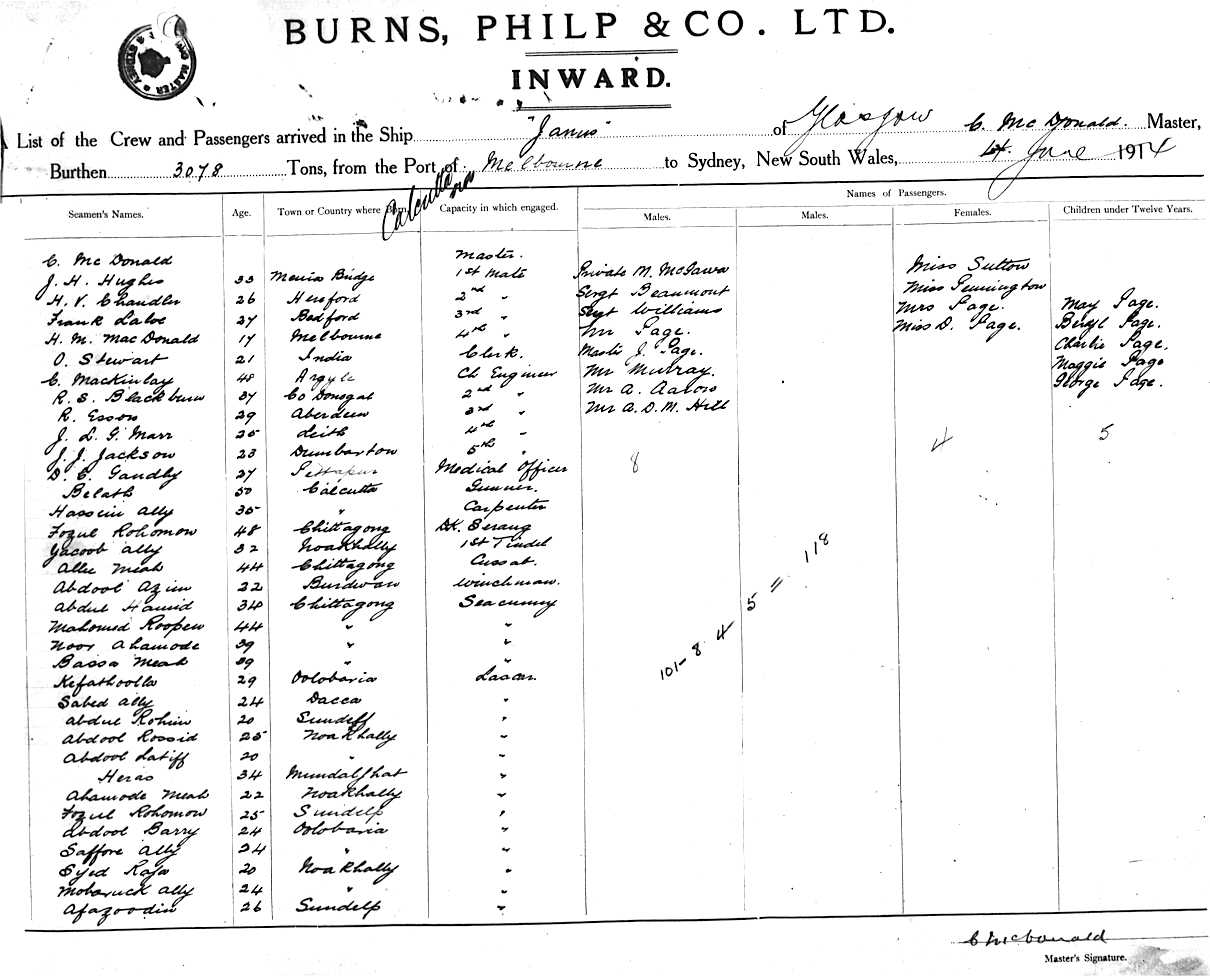 BURNS, PHILP & CO. LTD.
INWARD.
List of the Crew and Passengers arrived in the Ship "Janus" of Glasgow C. McDonald. Master,
Burthen 3078 Tons, from the Port of Melbourne to Sydney, New South Wales, 4th June 1914
Calcutta via
Names of Passengers.
Seamen's Names. Age. Town or Country where Born. Capacity in which engaged. Males. Males. Females. Children under Twelve Years.
C. McDonald Master.
J. H. Hughes 33 Menai Bridge 1st Mate Private M. Miss Sutton
H. V. Chandler 26 Hereford 2nd " Sergt Beaumont Miss Pennington
Frank Laloe 27 Bedford 3rd " Sergt Williams Mrs Page. May Page.
H. M. MacDonald 17 Melbourne 4th " Mr Page. Miss D. Page. Beryl Page.
O. Stewart 21 India Clerk. Master J. Page. Charlie Page.
C. Mackinlay 48 Argyle Ch Engineer Mr Murray. Maggie Page
R. S. Blackburn 37 Co Donegal 2nd " Mr A. Aarons George Page.
R. Esson 29 Aberdeen 3rd " Mr A. D. M. Hill
J. L. G. Marr 25 Leith 4th "
J. J. Jackson 23 Dumbarton 5th "
D. C. Gandhy 27 Medical Officer 8 4 5
Belath 50 Calcutta Gunner.
Hassein Ally 35 " Carpenter
Fozul Rohomon 48 Chittagong DK. Serang
Yacoob Ally 32 Noakhally 1st Tindel
Allee Meah 44 Chittagong Cussab.
Abdool Azim 22 Burdwan Winchman.
Abdul Hamid 34 Chittagong Seacunny
Mahomed Roopen 44 " "
Noor Ahamode 39 " "
Bassa Meah 39 " "
Kefathoolla 29 Oolobaria Lascar.
Sabed Ally 24 Dacca "
Abdul Rohim 20 Sundeff "
Abdool Rossid 25 Noakhally "
Abdool Latiff 20 " "
Heras 34 Mundalghat "
Ahamode Meah 22 Noakhally "
Fozul Rohomon 25 Sundelp "
Abdool Barry 24 Oolobaria "
Saffore Ally 24 " "
Syed Raja 20 Noakhally "
Moboruck Ally 24 " "
Afazoodin 26 Sundelp "
101 - 8 4 5 = 118
C McDonald
Master's Signature.